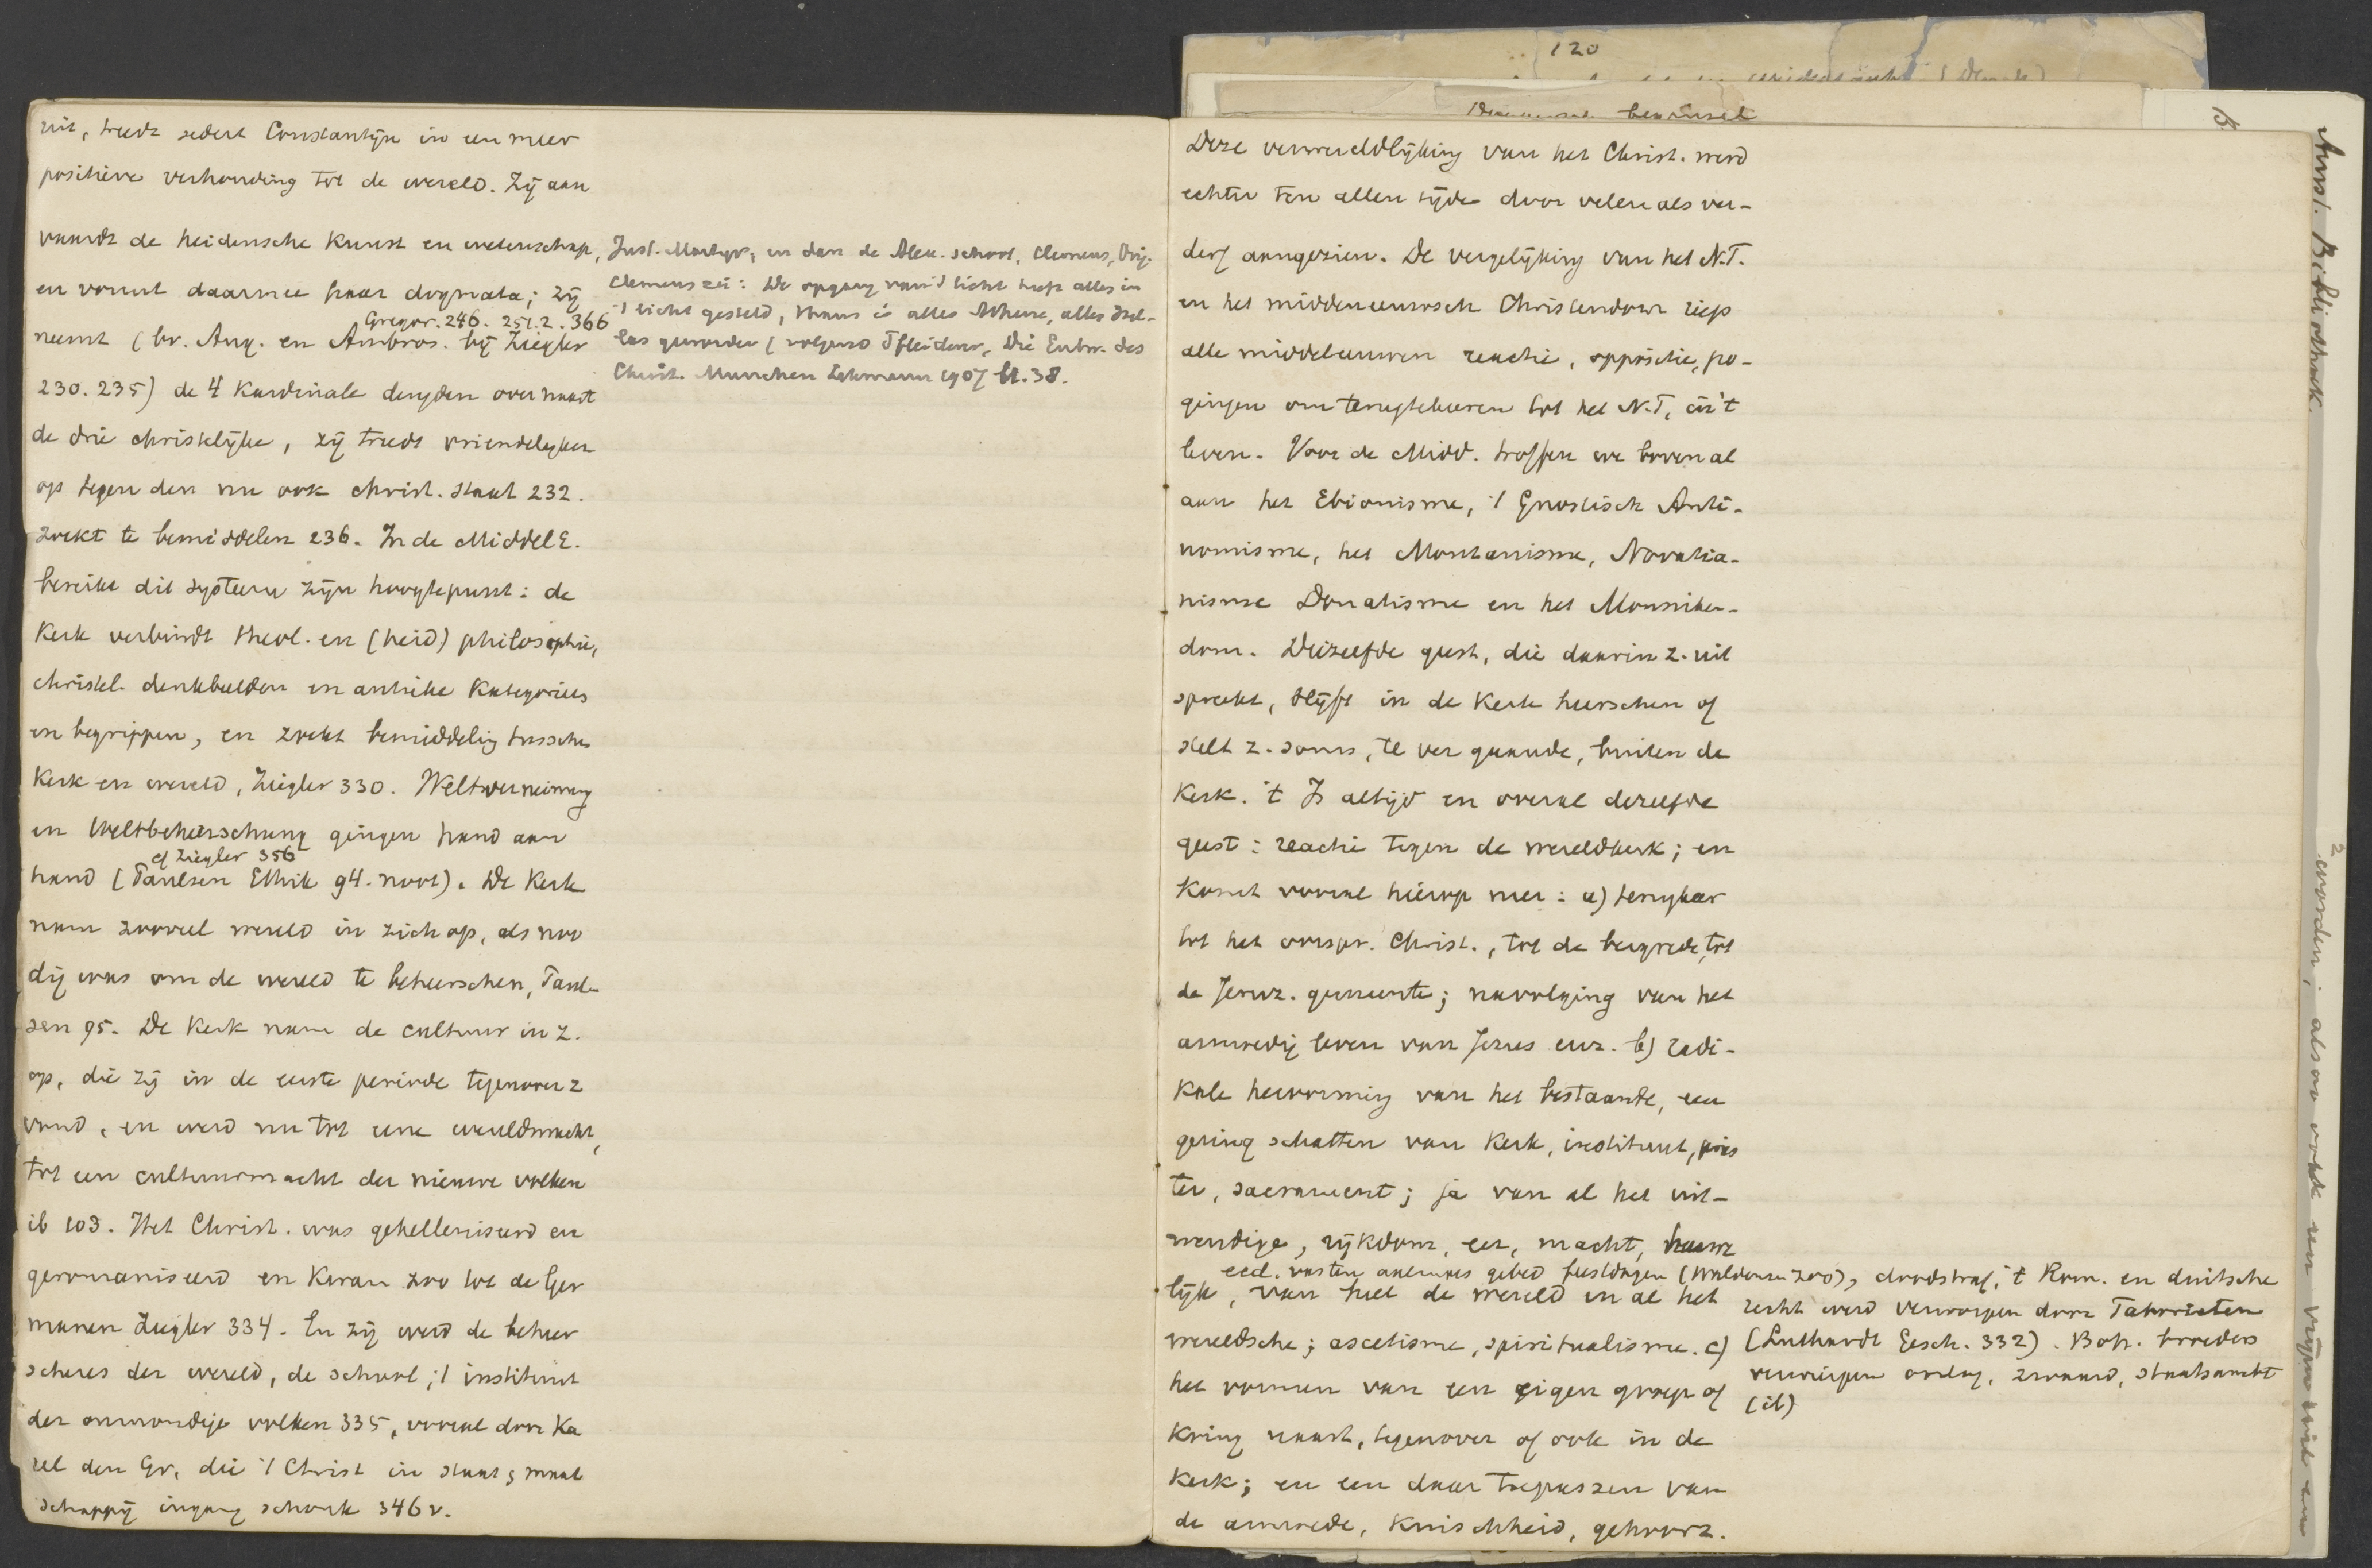 uit, treedt sedert Constantijn in een meer
positieve verhouding tot de wereld. Zij aan
vaardt de heidensche kunst en wetenschap,
en vormt daarmee haar dogmata; zij
Gregor. 246. 251.2. 366
neemt (bv. Aug. en Ambros. bij Ziegler
230. 235) de 4 kardinale deugden over naast
de drie christelijke, zij treedt vriendelijker
op tegen den nu ook christ. staat 232.
zoekt te bemiddelen 236. In de MiddelE.
bereikt dit systeem zijn hoogtepunt: de
Kerk verbindt theol. en (heid) philosophie,
christel. denkbeelden en antieke kategorieen
en begrippen, en zoekt bemiddeling tusschen
Kerk en wereld, Ziegler 330. Weltverneinung
en Weltbeherrschung gingen hand aan
cf Ziegler 356
hand (Paulsen Ethik 94. noot). De Kerk
nam zooveel wereld in zich op, als noo
dig was om de wereld te beheerschen, Paul-
sen 95. De Kerk nam de cultuur in z.
op, die zij in de eerste periode tegenover z
vond, en werd nu tot eene wereldmacht,
tot een cultuurmacht der nieuwe volken
ib 103. Het Christ. was gehelleniseerd en
geromaniseerd en kwam zoo tot de Ger
manen Ziegler 334. En zij werd de beheer
scheres der wereld, de school, 't instituut
der onmondige volken 335, vooral door Ka
rel den Gr, die 't Christ in staat & maat
schappij ingang schonk 346 v.
Just. Martyr, en dan de Alex. school, Clemens, Orig.
Clemens zei: De opgang van 't licht heeft alles in
't licht gesteld, thans is alles Athene, alles Hel-
las geworden (volgens Pfleiderer, Die Entw. des
Christ. Munchen Lehmann 1907 bl. 38.
120
Deze verwereldlijking van het Christ. werd
echter ten allen tijde door velen als ver-
derf aangezien. De vergelijking van het N.T.
en het middeneeuwsch Christendom riep
alle middeleeuwen reactie, oppositie, po-
gingen om terugtekeeren tot het N.T, in 't
leven. Voor de Midd. troffen we bovenal
aan het Ebionisme, 't Gnostisch Anti-
nomisme, het Montanisme, Novatia-
nisme Donatisme en het Monniken-
dom. Diezelfde geest, die daarin z. uit
spreekt, blijft in de Kerk heerschen of
stelt z. soms, te ver gaande, buiten de
Kerk. 't Is altijd en overal dezelfde
geest: reactie tegen de wereldkerk; en
komt vooral hierop neer: a) terugkeer
tot het oorspr. Christ., tot de bergrede, tot
de Jeruz. gemeente; navolging van het
armoedig leven van Jezus enz. b) radi-
kale hervorming van het bestaande, een
gering schatten van Kerk, instituut, pries
ter, sacrament; ja van al het uit-
wendige, rijkdom, eer, macht, huwe
eed. vasten aalmoes gebed feestdagen (Waldenzen zoo), doodstraf; 't Rom. en duitsche
lijk, van heel de wereld en al het
recht werd verworpen door Taborieten
wereldsche; ascetisme, spiritualisme. c)
(Luthardt Gesch. 332). Boh. broeders
verwierpen oorlog, zwaard, staatsambt
(ib)
het vormen van een eigen groep of
kring naast, tegenover of ook in de
Kerk; en een daar toepassen van
de armoede, kuischheid, gehoorz.
Amst. Bibliotheek.
worden; alsoo ook een